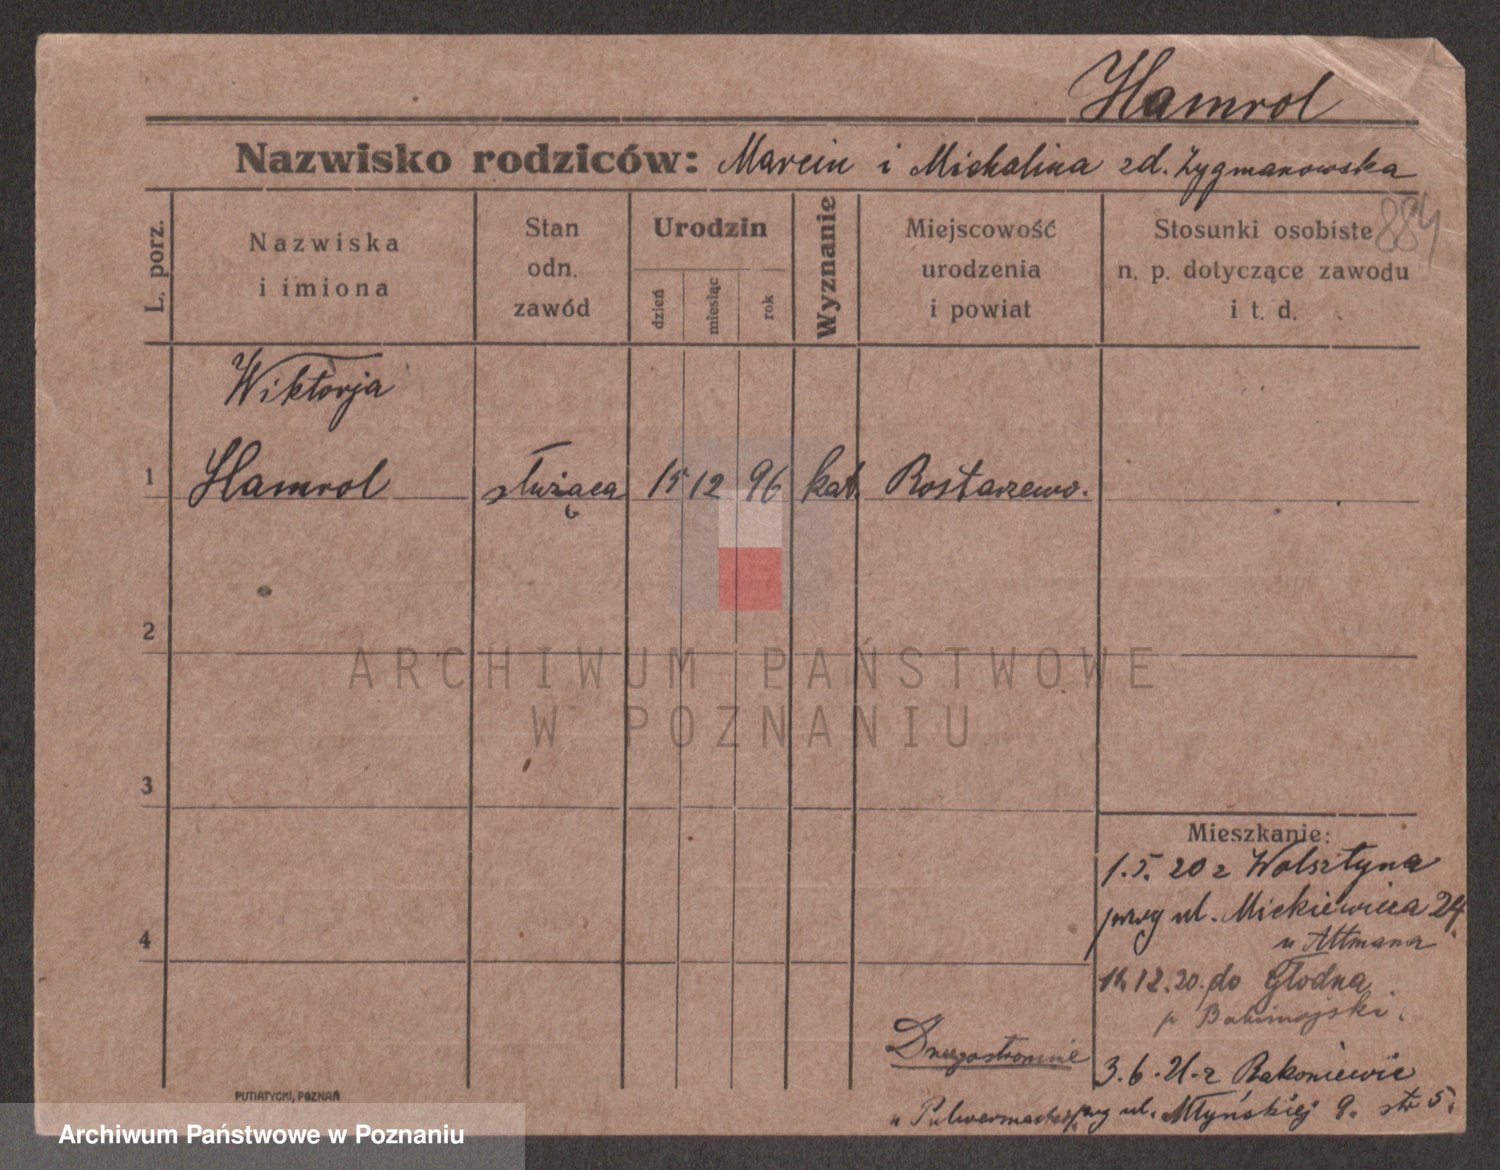 Hamrol
Nazwisko rodziców: Marcin i Michalina zd. Zygmanowska
884
L. porz.
Nazwiska
i imiona
Stan
odn.
zawód
Urodzin
dzień
miesiąc
rok
Wyznanie
Miejscowość
urodzenia
i powiat
Stosunki osobiste
n. p. dotyczące zawodu
i t. d.
Wiktorja
1 Hamrol służąca 15 12 96 kat. Rostarzewo.
2
ARCHIWUM PAŃSTWOWE
W POZNANIU
3
Mieszkanie:
1.5.20 z Wolsztyna
przy ul. Mickiewicza 24.
u Altmana
4
12.20. do Głodna
p Babimojski.
Drugostronnie
3.6.21. z Rakoniewic
przy ul. Młyńskiej 9. str 5.
PUTIATYCKI, POZNAŃ
Archiwum Państwowe w Poznaniu